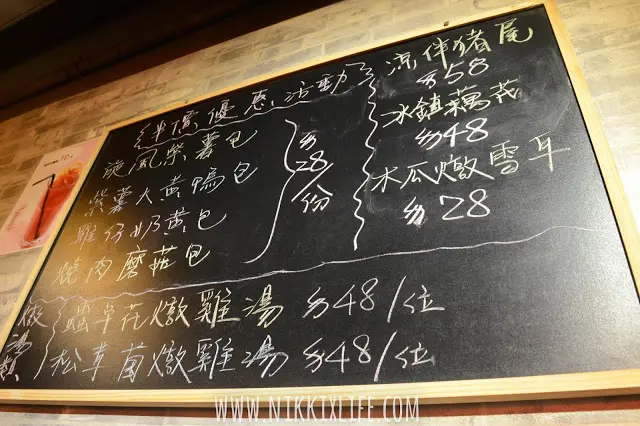 半價優惠活動
旋風紫薯包
紫薯大黃鴨包
雞仔奶黃包
燒肉磨菇包
$28/份
凉伴豬尾
$58
冰鎮蓮茂
$48
木瓜燉雪耳
$28
燉湯類
蟲草花燉雞湯 $48/位
松茸菌燉雞湯 $48/位
WWW.NIKKIXLIFE.COM